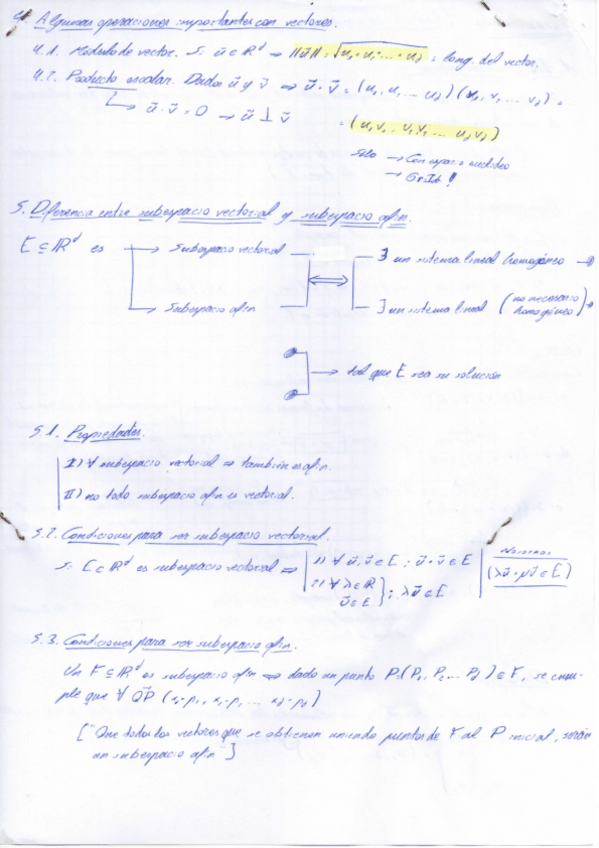 4. Algunas operaciones importantes con vectores.
4.1. Módulo de vector. Si ū ∈ ℝᵈ → ||ū|| = √u₁+u₂+...+u_d = long. del vector.
4.2. Producto escalar. Dados ū y v̄ ⇒ ū·v̄ = (u₁, u₂ ... u_d)(v₁, v₂ ... v_d) =
→ ū·v̄ = 0 → ū ⊥ v̄
= (u₁v₁, u₂v₂ ... u_dv_d)
Sólo → Con espacio euclídeo
5. Diferencia entre subespacio vectorial y subespacio afín.
E ⊆ ℝᵈ es → Subespacio vectorial ⇔ ∃ un sistema lineal homogéneo →
→ Subespacio afín ∃ un sistema lineal (no necesario homogéneo) →
→ tal que E sea su solución
5.1. Propiedades.
I) ∀ subespacio vectorial ⇒ también es afín.
II) no todo subespacio afín es vectorial.
5.2. Condiciones para ser subespacio vectorial.
Si E ⊆ ℝᵈ es subespacio vectorial ⇒ 1) ∀ ū, v̄ ∈ E ; ū + v̄ ∈ E
2) ∀ λ ∈ ℝ v̄ ∈ E } ; λū ∈ E
(λū + μv̄ ∈ E)
5.3. Condiciones para ser subespacio afín.
Un F ⊆ ℝᵈ es subespacio afín ⇒ dado un punto P (P₁, P₂ ... P_d) ∈ F, se cum-
ple que ∀ QP (x₁-p₁, x₂-p₂ ... x_d-p_d)
["Que todos los vectores que se obtienen uniendo puntos de F al P inicial, serán
un subespacio afín"]